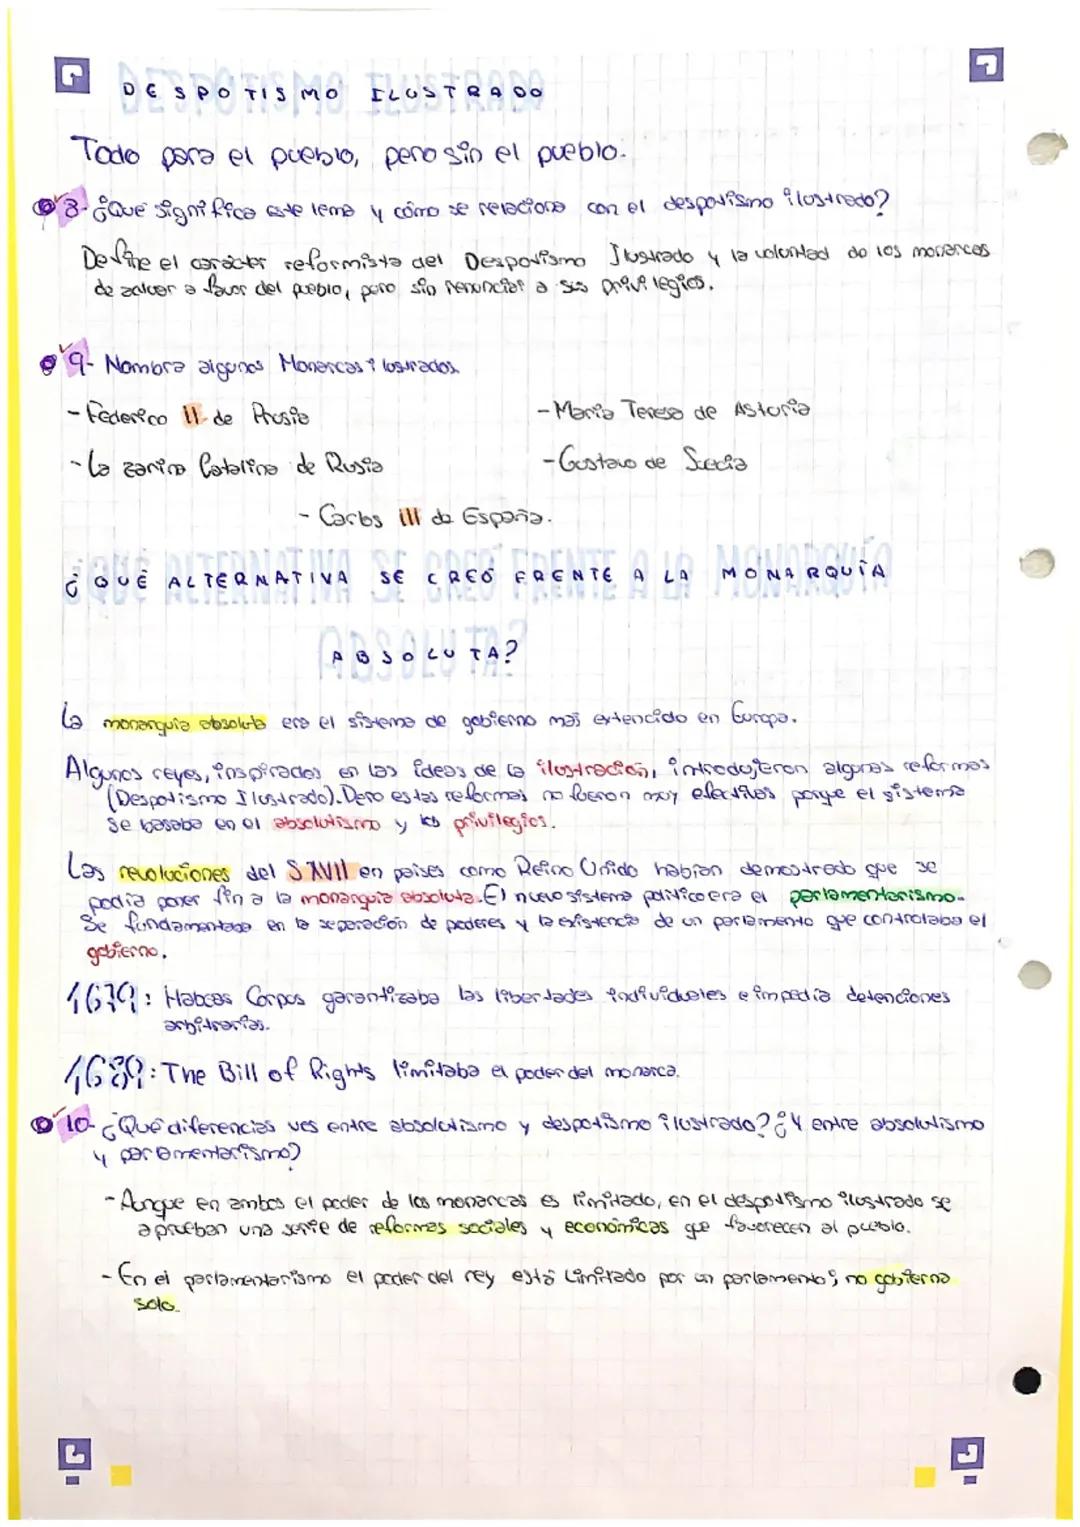 DESPOTISMO ILUSTRADO
Todo para el pueblo, pero sin el pueblo.
8- ¿Qué significa este lema y cómo se relaciona con el despotismo ilustrado?
Define el carácter reformista del Despotismo Ilustrado y la voluntad do los monarcas
de actuar a favor del pueblo, pero sin renunciar a sus privilegios.
9- Nombra algunos Monarcas ilustrados.
- Federico II de Prusia
- Maria Teresa de Asturia
- La zarina Catalina de Rusia
- Gustavo de Suecia
- Carlos III de España.
¿QUÉ ALTERNATIVA SE CREÓ FRENTE A LA MONARQUÍA
ABSOLUTA?
La monarquía absoluta era el sistema de gobierno más extencido en Europa.
Algunos reyes, inspirados en las ideas de la ilustración, introdujeron algunas reformas
(Despotismo Ilustrado). Pero estas reformas no fueron muy efectivas porque el sistema
se basaba en el absolutismo y los privilegios.
Las revoluciones del S XVII en países como Reino Unido habían demostrado que se
podía poner fin a la monarquía absoluta. El nuevo sistema político era el parlamentarismo.
Se fundamentaba en la separación de poderes y la existencia de un parlamento que controlaba el
gobierno.
1679: Habeas Corpus garantizaba las libertades individuales e impedía detenciones
arbitrarias.
1689: The Bill of Rights limitaba el poder del monarca.
10- ¿Qué diferencias ves entre absolutismo y despotismo ilustrado? ¿Y entre absolutismo
y paramentarismo?
- Aunque en ambos el poder de los monarcas es limitado, en el despotismo ilustrado se
aprueban una serie de reformas sociales y económicas que favorecen al pueblo.
- En el parlamentarismo el poder del rey está limitado por un parlamento; no gobierna
solo.